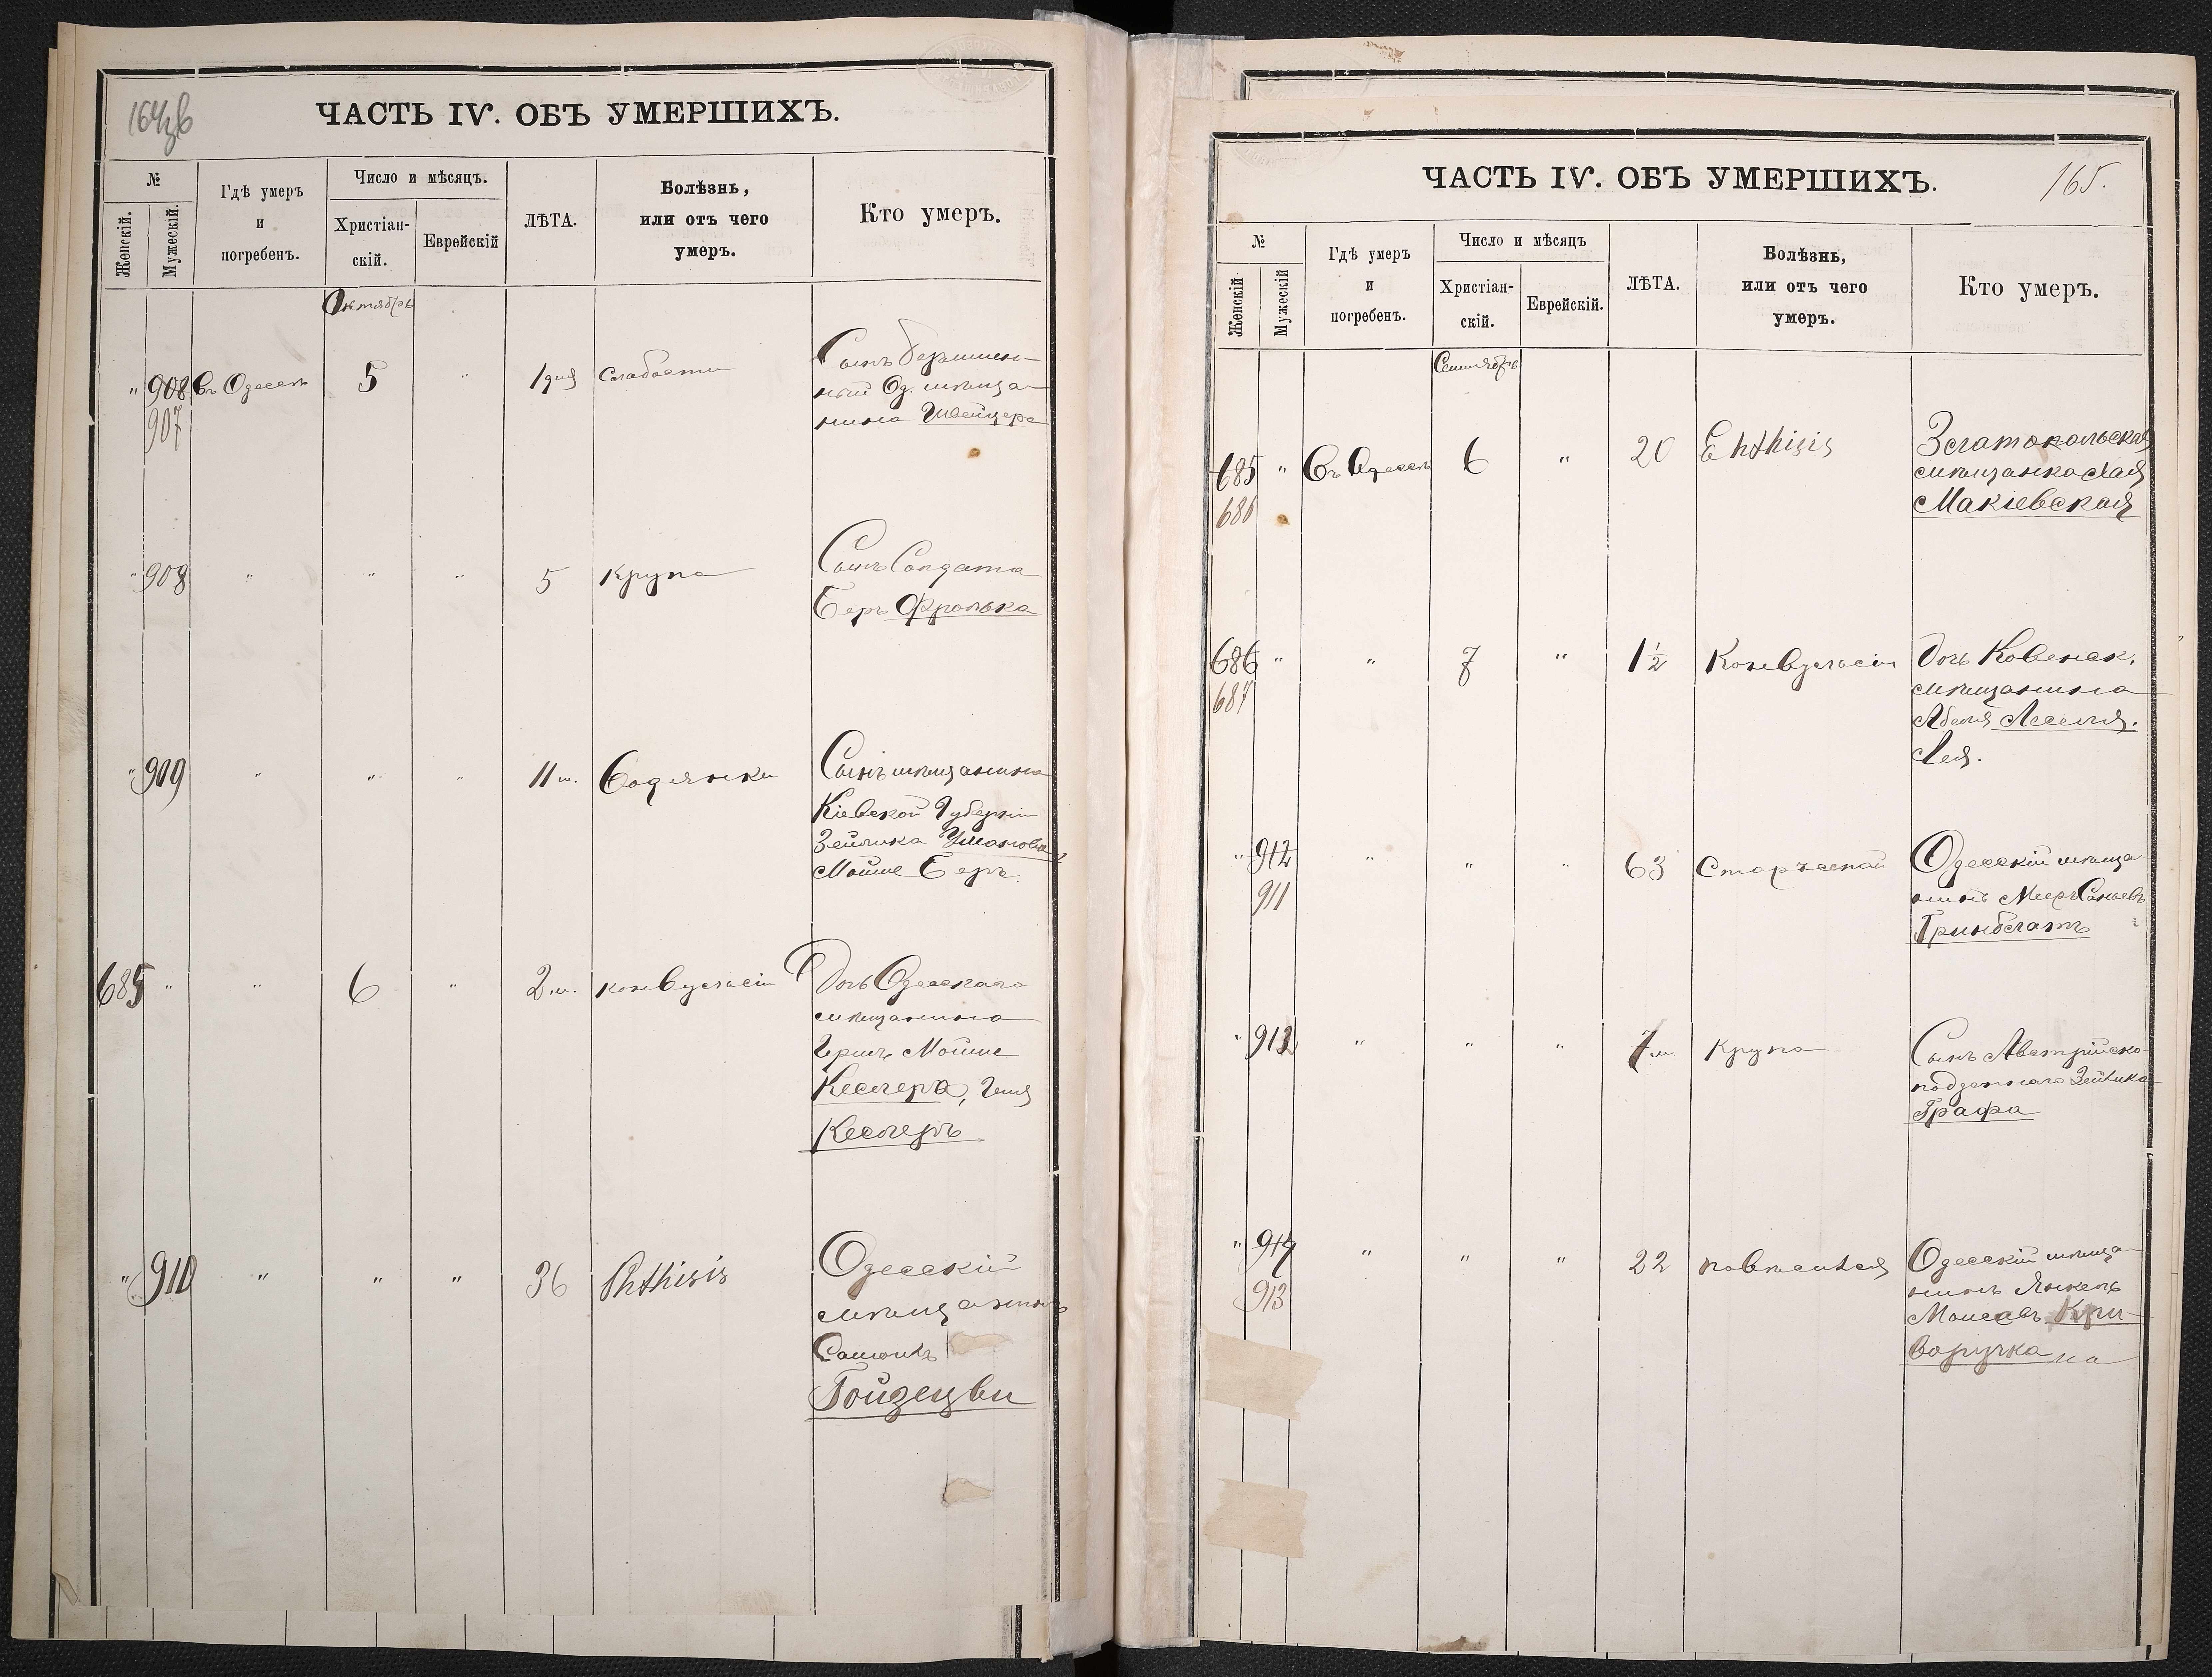 ЧАСТЬ IV. ОБЪ УМЕРШИХЪ.
№
Женскій.
Мужескій.
Гдѣ умеръ
и
погребенъ.
Число и мѣсяцъ.
Христіан-
скій.
Еврейскій
ЛѢТА.
Болѣзнь,
или отъ чего
умеръ.
Кто умеръ.
Октябрь
" 908 Въ Одессѣ 5 " 1 дня Слабости Сынъ
907
ный Од. мѣща-
нина Швейцера
" 908 " " " 5 Крупа Сынъ Солдата
Беръ Фролька
" 909 " " " 11 м. Водянки Сынъ мѣщанина
Кіевской Губерніи
Зейлика Уманова
Мойше Беръ.
685 " " 6 " 2 м. Конвульсіи Дочь Одесскаго
мѣщанина
Гершъ Мойше
Кеслера,
Кеслеръ
" 910 " " " 36 Phthisis Одесскій
мѣщанинъ
ЧАСТЬ IV. ОБЪ УМЕРШИХЪ.
165.
№
Женскій
Мужескій
Гдѣ умеръ
и
погребенъ.
Число и мѣсяцъ
Христіан-
скій.
Еврейскій.
ЛѢТА.
Болѣзнь,
или отъ чего
умеръ.
Кто умеръ.
685 " Въ Одессѣ 6 " 20 Phthisis Златопольская
мѣщанка Хая
686 Макіевская
686 " " 7 " 1½ Конвульсіи Дочь Ковенск.
687 мѣщанина
Лея.
" 912 " " " 63 Одесскій мѣща-
911 нинъ Меер
Гринблатъ
" 912 " " " 7 м. Крупа Сынъ Австрійско-
подданнаго Зейлика
Графа
" 914 " " " 22 повѣсился Одесскій мѣща-
913 нинъ Янкель
Моисеевъ Кри-
воручка